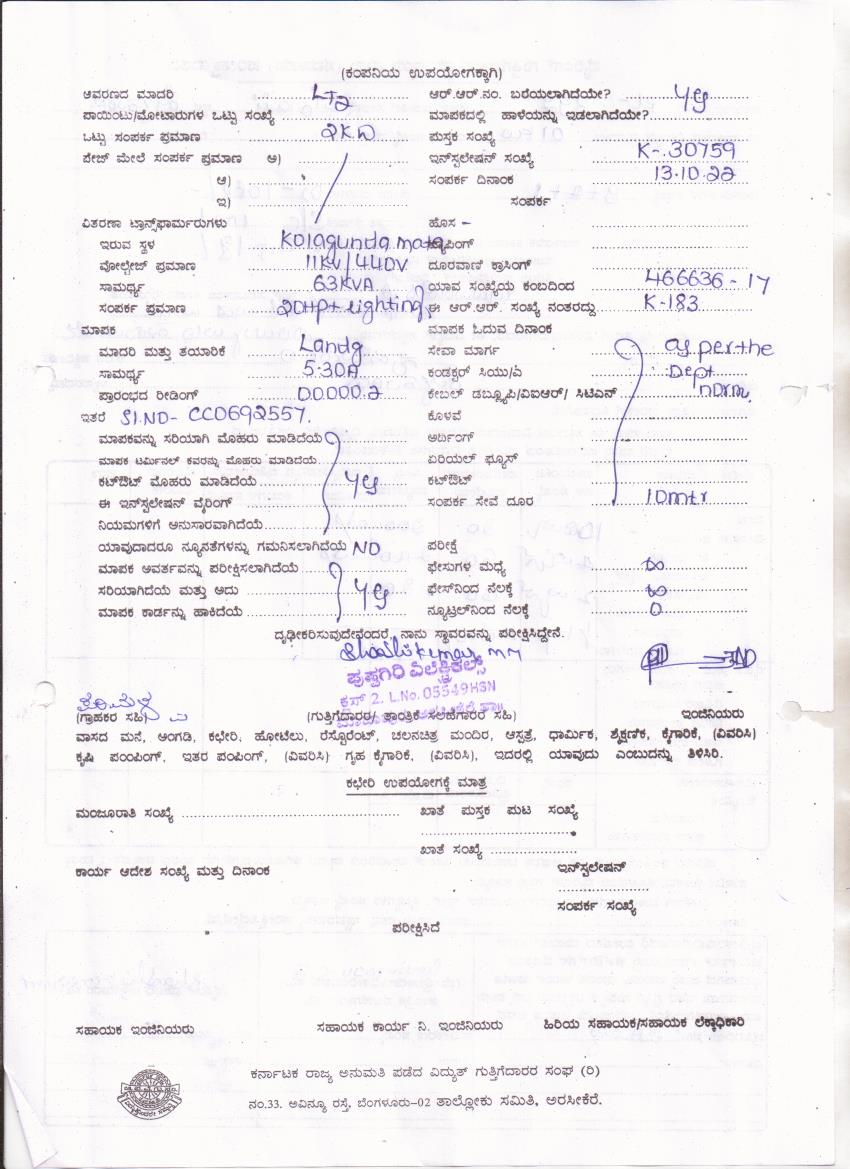 (ಕಂಪನಿಯ ಉಪಯೋಗಕ್ಕಾಗಿ)
ಆವರಣದ ಮಾದರಿ LT2 ಆರ್.ಆರ್.ನಂ. ಬರೆಯಲಾಗಿದೆಯೇ?
ಪಾಯಿಂಟು/ಮೋಟಾರುಗಳ ಒಟ್ಟು ಸಂಖ್ಯೆ ಮಾಪಕದಲ್ಲಿ ಹಾಳೆಯನ್ನು ಇಡಲಾಗಿದೆಯೇ?
ಒಟ್ಟು ಸಂಪರ್ಕ ಪ್ರಮಾಣ 2KW ಪುಸ್ತಕ ಸಂಖ್ಯೆ
ಪೇಜ್ ಮೇಲೆ ಸಂಪರ್ಕ ಪ್ರಮಾಣ ಅ) ಇನ್‌ಸ್ಟಲೇಷನ್ ಸಂಖ್ಯೆ K-30759
ಆ) ಸಂಪರ್ಕ ದಿನಾಂಕ 13.10.22
ಇ) ಸಂಪರ್ಕ
ವಿತರಣಾ ಟ್ರಾನ್ಸ್‌ಫಾರ್ಮರುಗಳು ಹೊಸ –
ಇರುವ ಸ್ಥಳ Kolagunda mata ಟ್ಯಾಪಿಂಗ್
ವೋಲ್ಟೇಜ್ ಪ್ರಮಾಣ 11KV/440V ದೂರವಾಣಿ ಕ್ರಾಸಿಂಗ್
ಸಾಮರ್ಥ್ಯ 63KVA ಯಾವ ಸಂಖ್ಯೆಯ ಕಂಬದಿಂದ 466636-17
ಸಂಪರ್ಕ ಪ್ರಮಾಣ 20Hp+Lighting ಈ ಆರ್.ಆರ್. ಸಂಖ್ಯೆ ನಂತರದ್ದು K-183
ಮಾಪಕ ಮಾಪಕ ಓದುವ ದಿನಾಂಕ
ಮಾದರಿ ಮತ್ತು ತಯಾರಿಕೆ Landg ಸೇವಾ ಮಾರ್ಗ as per the
ಸಾಮರ್ಥ್ಯ 5-30A ಕಂಡಕ್ಟರ್ ಸಿಯು/ಎ Dept
ಪ್ರಾರಂಭದ ರೀಡಿಂಗ್ 00000.2 ಕೇಬಲ್ ಡಬ್ಲ್ಯೂಪಿ/ವಿಐಆರ್/ ಸಿಟಿಎನ್ norm.
ಇತರೆ Sl.NO- CC0692557. ಕೊಳವೆ
ಮಾಪಕವನ್ನು ಸರಿಯಾಗಿ ಮೊಹರು ಮಾಡಿದೆಯೆ ಅರ್ದಿಂಗ್
ಮಾಪಕ ಟರ್ಮಿನಲ್ ಕವರನ್ನು ಮೊಹರು ಮಾಡಿದೆಯೆ ಏರಿಯಲ್ ಫ್ಯೂಸ್
ಕಟ್‌ಔಟ್ ಮೊಹರು ಮಾಡಿದೆಯೆ ಕಟ್‌ಔಟ್
ಈ ಇನ್‌ಸ್ಟಲೇಷನ್ ವೈರಿಂಗ್ ಸಂಪರ್ಕ ಸೇವೆ ದೂರ 10mtr
ನಿಯಮಗಳಿಗೆ ಅನುಸಾರವಾಗಿದೆಯೆ
ಯಾವುದಾದರೂ ನ್ಯೂನತೆಗಳನ್ನು ಗಮನಿಸಲಾಗಿದೆಯೆ NO ಪರೀಕ್ಷೆ
ಮಾಪಕ ಅವರ್ತವನ್ನು ಪರೀಕ್ಷಿಸಲಾಗಿದೆಯೆ ಫೇಸುಗಳ ಮಧ್ಯೆ ∞
ಸರಿಯಾಗಿದೆಯೆ ಮತ್ತು ಅದು ಫೇಸ್‌ನಿಂದ ನೆಲಕ್ಕೆ ∞
ಮಾಪಕ ಕಾರ್ಡನ್ನು ಹಾಕಿದೆಯೆ ನ್ಯೂಟ್ರಲ್‌ನಿಂದ ನೆಲಕ್ಕೆ 0
ದೃಢೀಕರಿಸುವುದೇನೆಂದರೆ, ನಾನು ಸ್ಥಾವರವನ್ನು ಪರೀಕ್ಷಿಸಿದ್ದೇನೆ.
ಪುಷ್ಪಗಿರಿ ಎಲೆಕ್ಟ್ರಿಕಲ್ಸ್
ಕ್ಲಾಸ್ 2. L.No. 05549HSN
(ಗ್ರಾಹಕರ ಸಹಿ) (ಗುತ್ತಿಗೆದಾರರ/ ತಾಂತ್ರಿಕ ಸಲಹೆಗಾರರ ಸಹಿ) ಇಂಜಿನಿಯರು
ವಾಸದ ಮನೆ, ಅಂಗಡಿ, ಕಛೇರಿ, ಹೋಟೆಲು, ರೆಸ್ಟೊರೆಂಟ್, ಚಲನಚಿತ್ರ ಮಂದಿರ, ಆಸ್ಪತ್ರೆ, ಧಾರ್ಮಿಕ, ಶೈಕ್ಷಣಿಕ, ಕೈಗಾರಿಕೆ, (ವಿವರಿಸಿ)
ಕೃಷಿ ಪಂಪಿಂಗ್, ಇತರ ಪಂಪಿಂಗ್, (ವಿವರಿಸಿ) ಗೃಹ ಕೈಗಾರಿಕೆ, (ವಿವರಿಸಿ), ಇದರಲ್ಲಿ ಯಾವುದು ಎಂಬುದನ್ನು ತಿಳಿಸಿರಿ.
ಕಛೇರಿ ಉಪಯೋಗಕ್ಕೆ ಮಾತ್ರ
ಮಂಜೂರಾತಿ ಸಂಖ್ಯೆ ಖಾತೆ ಪುಸ್ತಕ ಪುಟ ಸಂಖ್ಯೆ
ಖಾತೆ ಸಂಖ್ಯೆ
ಕಾರ್ಯ ಆದೇಶ ಸಂಖ್ಯೆ ಮತ್ತು ದಿನಾಂಕ ಇನ್‌ಸ್ಟಲೇಷನ್
ಸಂಪರ್ಕ ಸಂಖ್ಯೆ
ಪರೀಕ್ಷಿಸಿದೆ
ಸಹಾಯಕ ಇಂಜಿನಿಯರು ಸಹಾಯಕ ಕಾರ್ಯ ನಿ. ಇಂಜಿನಿಯರು ಹಿರಿಯ ಸಹಾಯಕ/ಸಹಾಯಕ ಲೆಕ್ಕಾಧಿಕಾರಿ
ಕರ್ನಾಟಕ ರಾಜ್ಯ ಅನುಮತಿ ಪಡೆದ ವಿದ್ಯುತ್ ಗುತ್ತಿಗೆದಾರರ ಸಂಘ (ರಿ)
ನಂ.33. ಅವಿನ್ಯೂ ರಸ್ತೆ, ಬೆಂಗಳೂರು–02 ತಾಲ್ಲೋಕು ಸಮಿತಿ, ಅರಸೀಕೆರೆ.